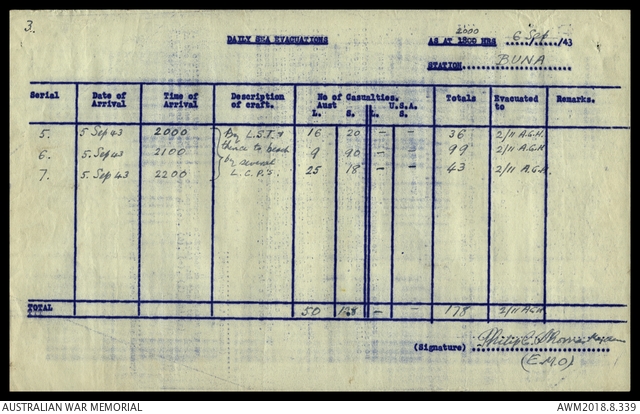 3.
2000
DAILY SEA EVACUATIONS AS AT 1800 HRS 6 Sept /43
STATION BUNA
Serial Date of Arrival Time of Arrival Description of craft. No of Casualties. Totals Evacuated to Remarks.
Aust U.S.A.
L. S. L. S.
5. 5 Sep 43 2000 By L.S.T. 16 20 - - 36 2/11 A.G.H.
6. 5 Sep 43 2100 thence to beach 9 90 - - 99 2/11 A.G.H.
by several
7. 5 Sep 43 2200 L.C.P's. 25 18 - - 43 2/11 A.G.H.
TOTAL 50 128 - - 178 2/11 A.G.H.
(Signature) Philip E.
(E.M.O)
AUSTRALIAN WAR MEMORIAL AWM2018.8.339